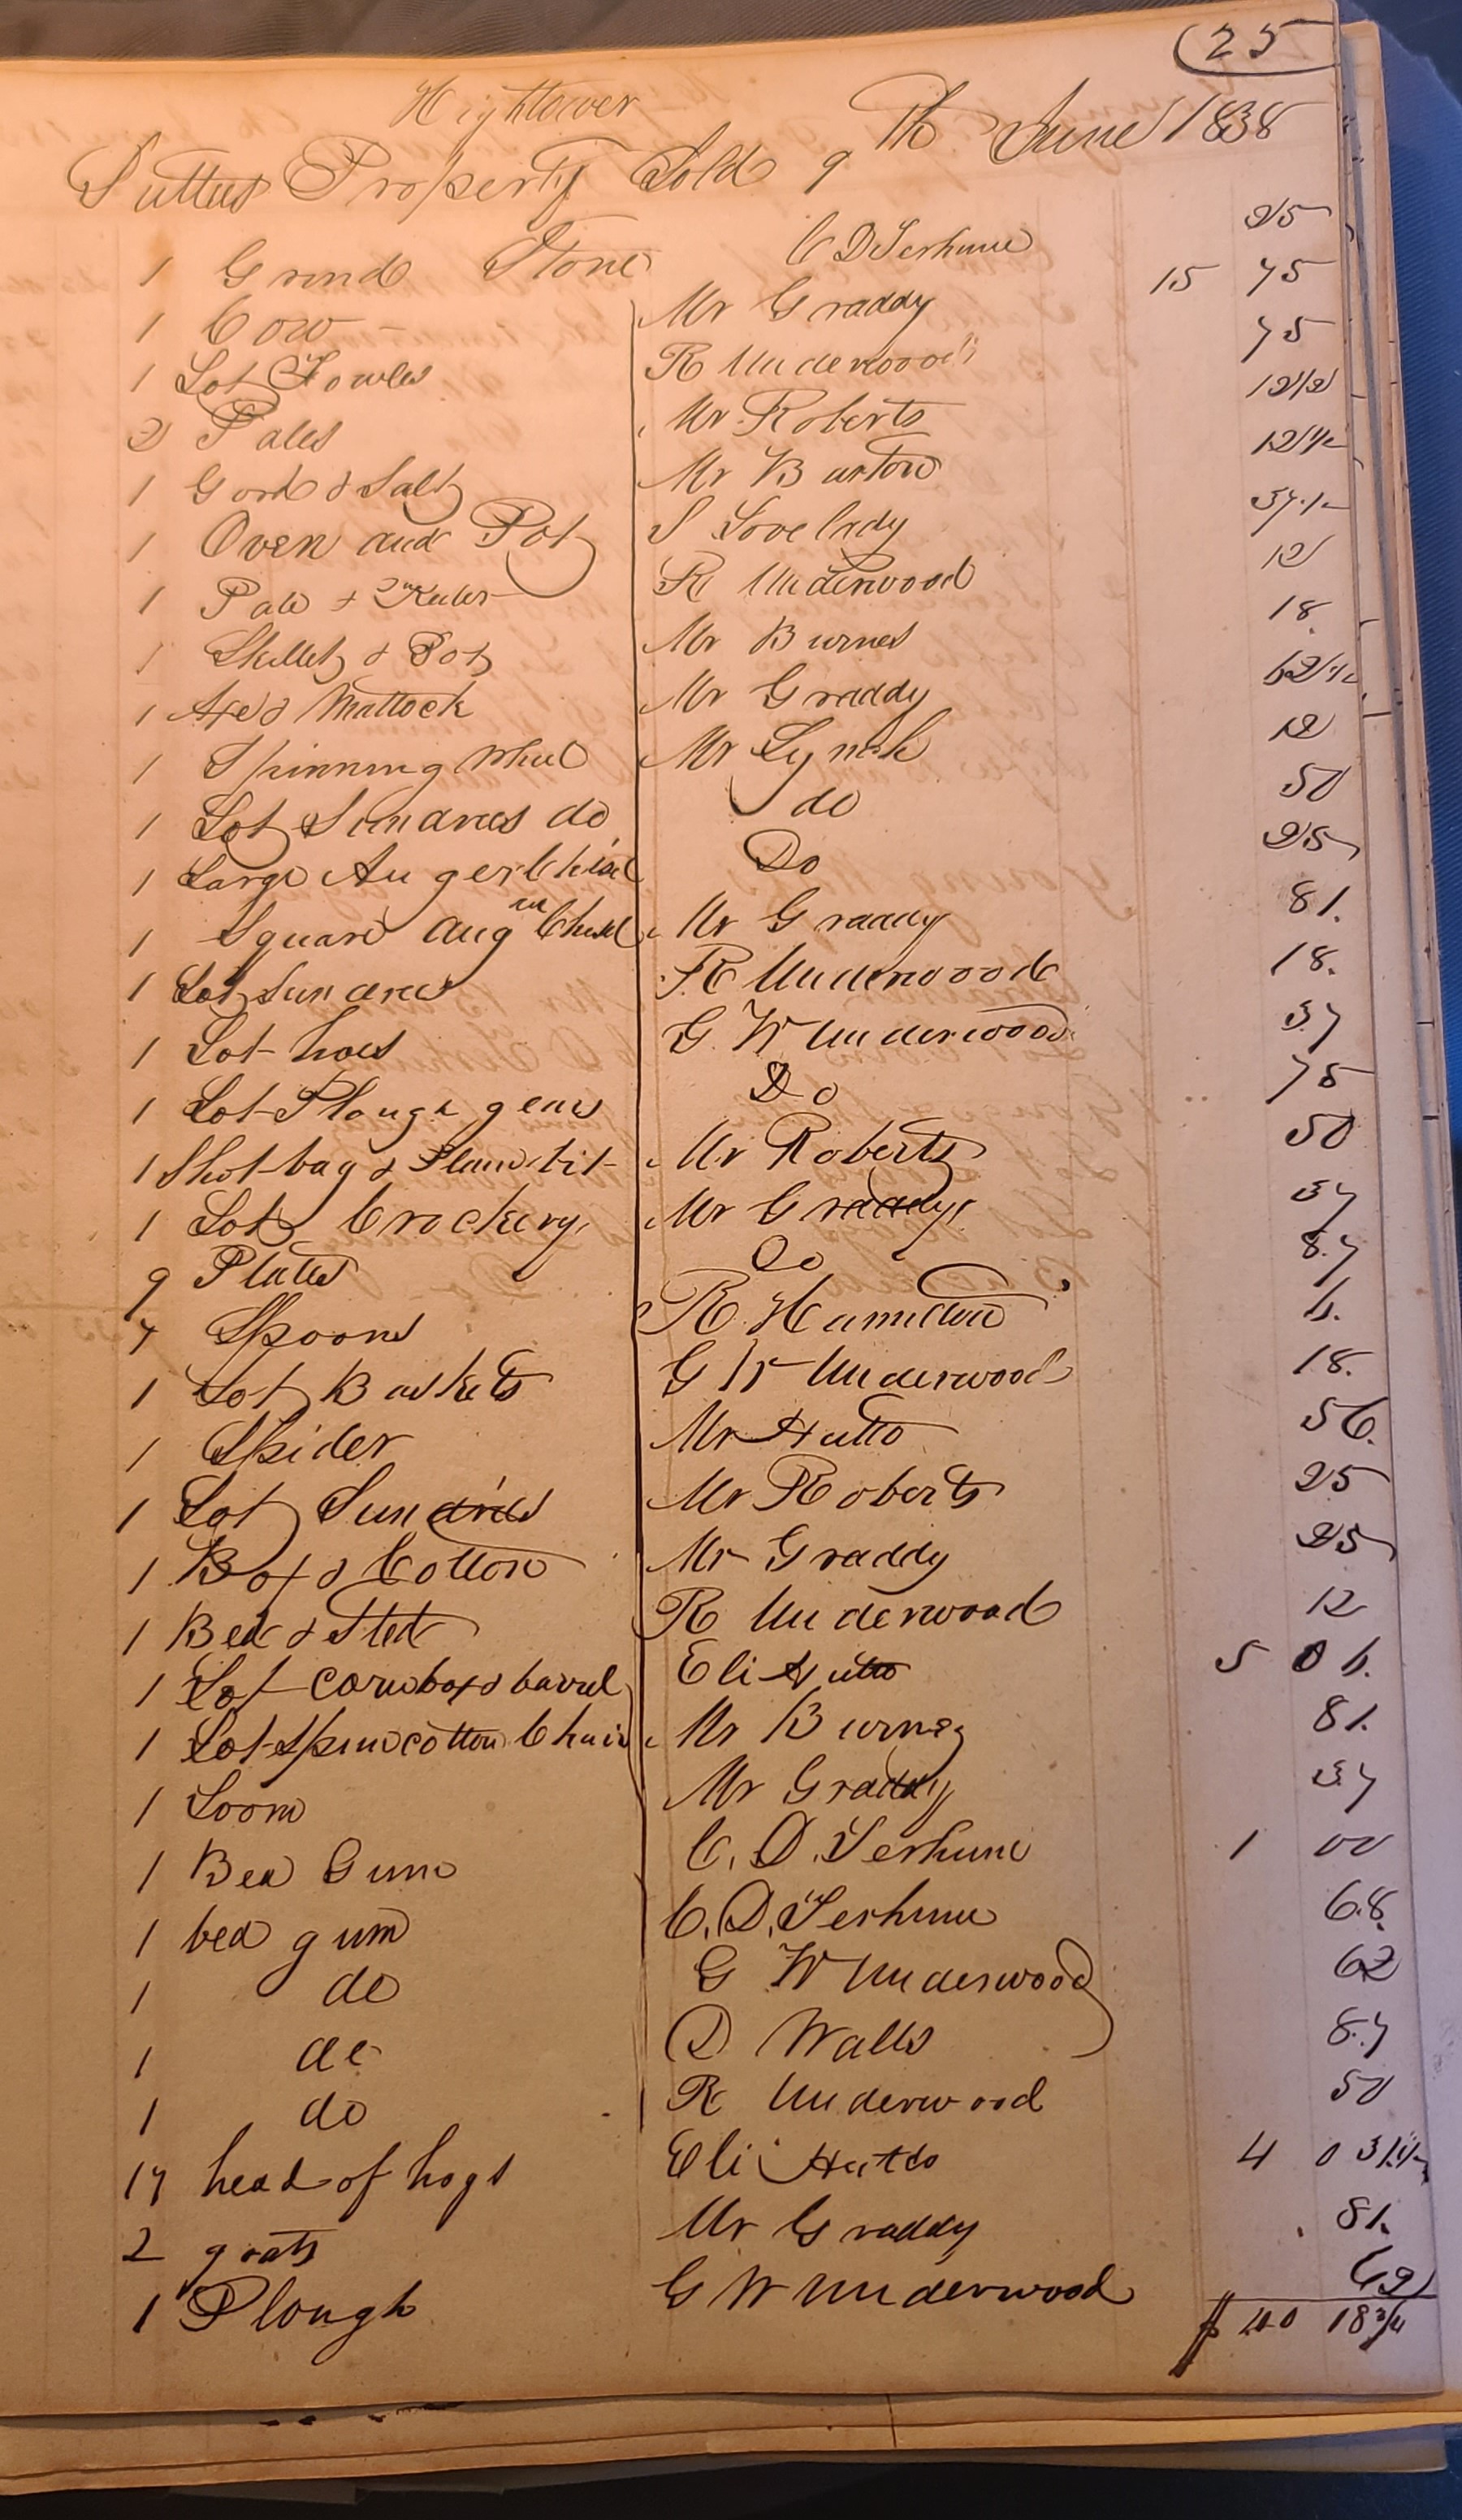 25
Hightower
Suttus Property Sold 9 Th June 1838
1 Grind Stone C D Terhune 25
1 Cow Mr Graddy 15 75
1 Lot Fowles R Underwood 75
2 Pales Mr Roberts 12 1/2
1 Gord & Salt Mr Burton 12 1/2
1 Oven and Pot S Lovelady 37 1/2
1 Pale & R Underwood 12
1 Skillet & Pot Mr Burnes 18
1 Axe & Mattock Mr Graddy 62 1/2
1 Spinning Wheel Mr Lynch 12
1 Lot Sundres do do 50
1 Large Auger Chisel Do 25
1 Square Aug Chisel Mr Graddy 81.
1 Lot Sundres R Underwood 18.
1 Lot hoes G. W Underwood 37
1 Lot Plough gears Do 75
1 Shot bag & bit Mr Roberts 50
1 Lot Crockery Mr Graddy 37
9 Plates Do 8.7
7 Spoons R. Hamilton 6.
1 Lot Baskets G W Underwood 18.
1 Spider Mr Hutto 56.
1 Lot Sundries Mr Roberts 25
1 Box & Cotton Mr Graddy 25
1 Bed & Sted R Underwood 12
1 Lot Corn box & barrel Eli Hutto 5 06.
1 Lot Spun cotton Chair Mr Burnes 81.
1 Loom Mr Graddy 37
1 Bea Gum C. D. Terhune 1 00
1 bea gum C. D. Terhune 68.
1 do G W Underwood 62
1 do D Walls 8.7
1 do R Underwood 50
17 head of hogs Eli Hutto 4 0 31 1/4
2 goats Mr Graddy 81.
1 Plough G W Underwood 62
$ 40 18 3/4